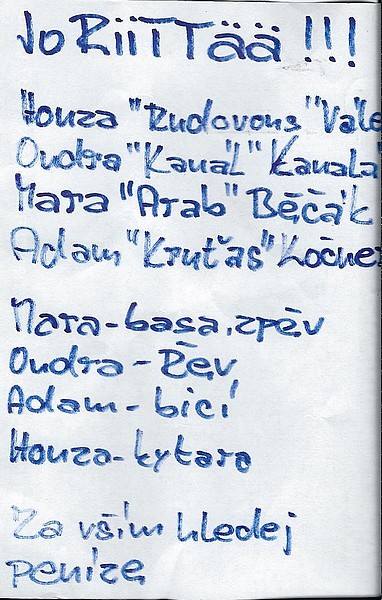 Jo RiiTTää !!!
Honza "Rudovous" Vále
Ondra "Kanál" Kanala
Mara "Arab" Běčák
Adam "Kruťas" Ločne
Mara-basa,zpěv
Ondra-Řev
Adam-bicí
Honza-kytara
Za vším hledej
peníze